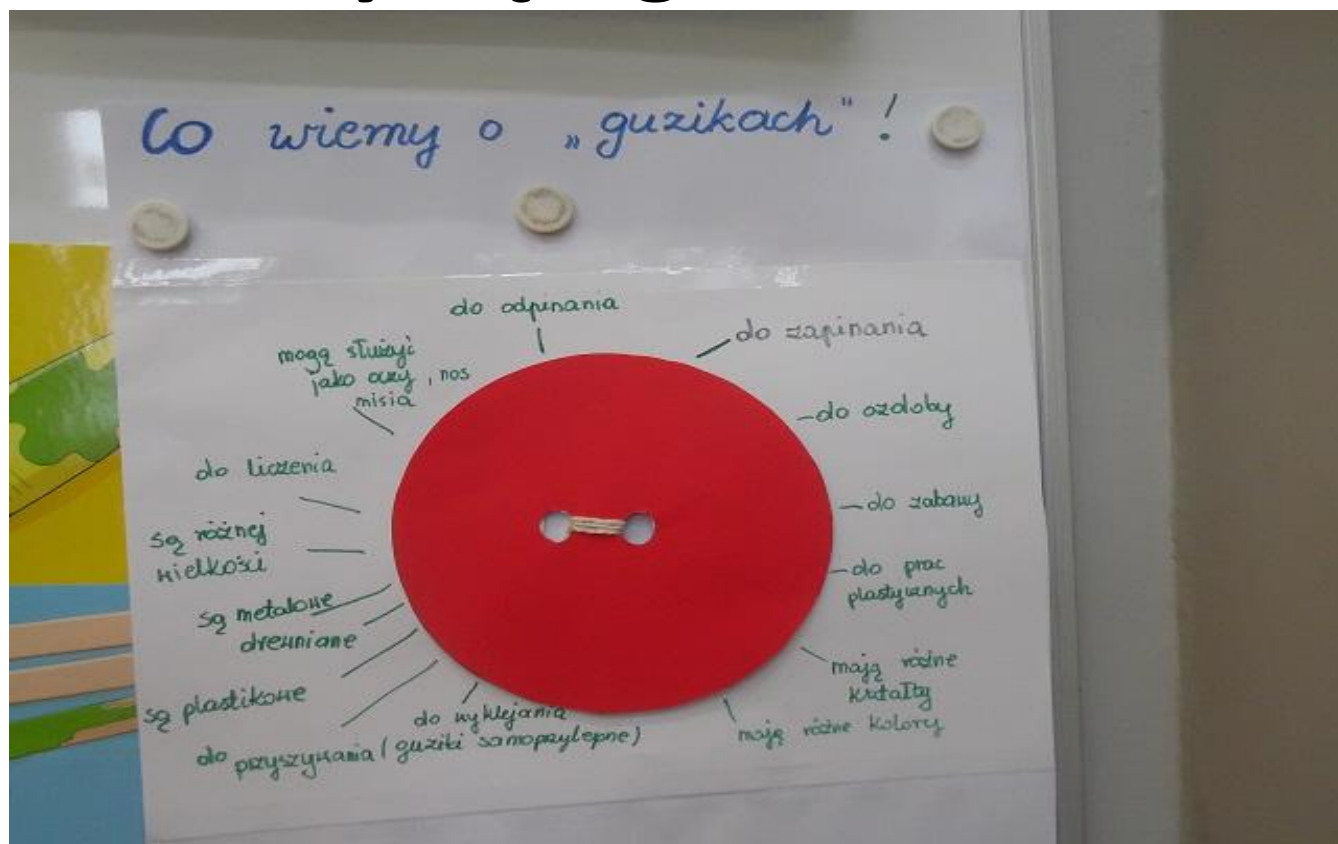 Co wiemy o „guzikach" !
do odpinania
do zapinania
do ozdoby
do zabawy
do prac
plastycznych
mają różne
kształty
mają różne kolory
do wyklejania
(guziki samoprzylepne)
do przyszywania
są plastikowe
są metalowe
drewniane
są różnej
wielkości
do liczenia
mogą służyć
jako oczy, nos
misia